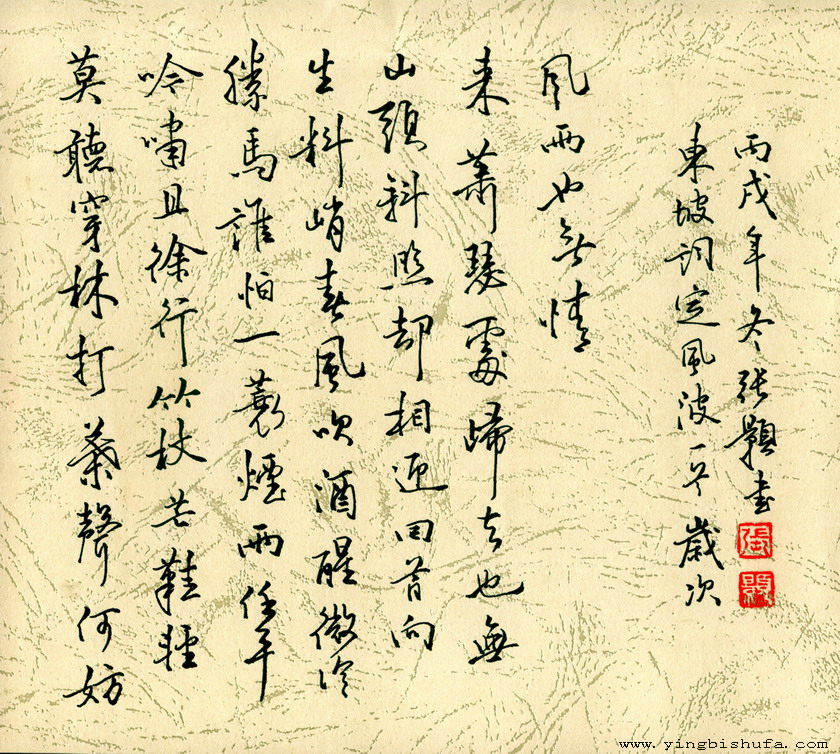 莫聽穿林打葉聲何妨
吟嘯且徐行竹杖芒鞋輕
勝馬誰怕一蓑煙雨任平
生料峭春風吹酒醒微冷
山頭斜照却相迎回首向
來蕭瑟處歸去也無
风雨也无情
東坡詞定風波一首歲次
丙戌年冬张書
www.yingbishufa.com